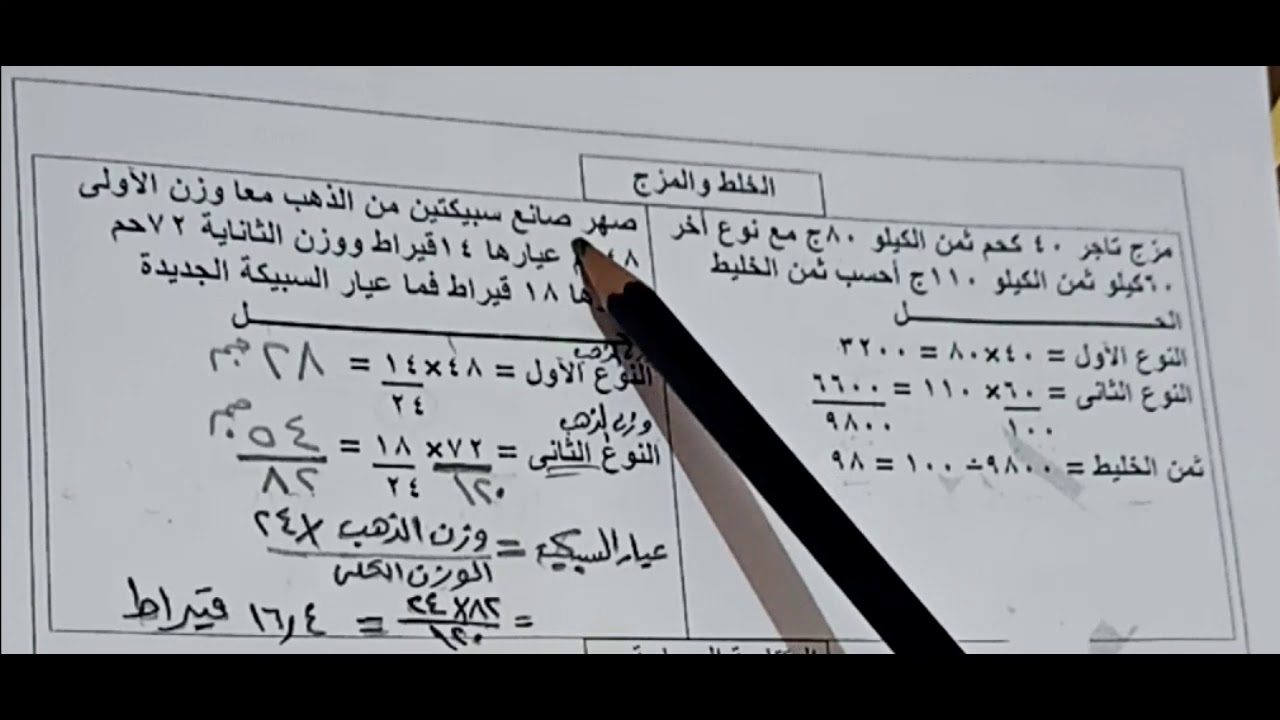 الخلط والمزج
مزج تاجر ٤٠ كحم ثمن الكيلو ٨٠ج مع نوع أخر
٦٠كيلو ثمن الكيلو ١١٠ج أحسب ثمن الخليط
الحـــــــــــــــل
النوع الأول = ٤٠×٨٠ = ٣٢٠٠
النوع الثانى = ٦٠× ١١٠ = ٦٦٠٠
١٠٠ ٩٨٠٠
ثمن الخليط = ٩٨٠٠÷ ١٠٠ = ٩٨
صهر صانع سبيكتين من الذهب معا وزن الأولى
٤٨ عيارها ١٤قيراط ووزن الثاناية ٧٢حم
١٨ قيراط فما عيار السبيكة الجديدة
ـــــــــــــــل
النوع الأول = ٤٨×١٤ = ٢٨ جم
٢٤
وزن الذهب
النوع الثانى = ٧٢× ١٨ = ٥٤ جم
١٢٠ ٢٤ ٨٢
عيار السبيكة = وزن الذهب × ٢٤
الوزن الكلى
= ٢٤×٨٢ = ١٦,٤ قيراط
١٢٠